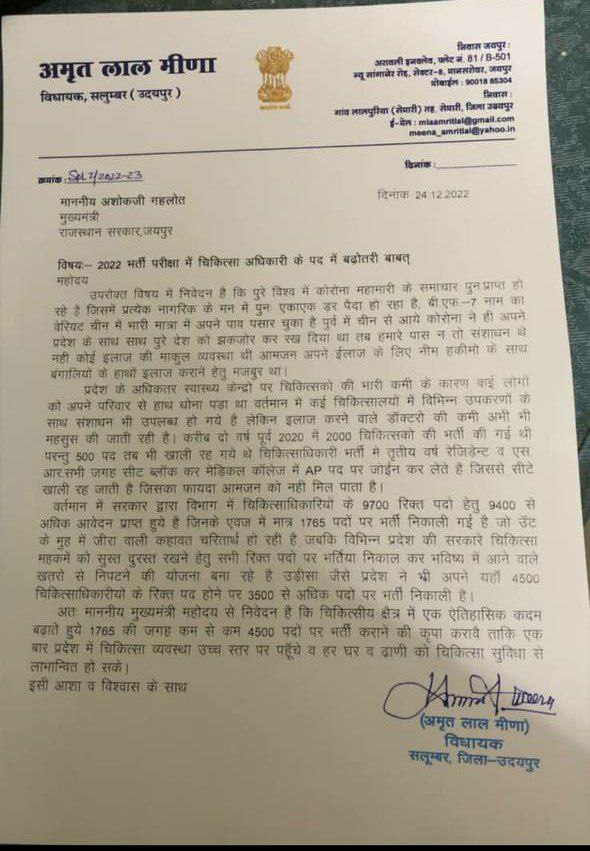 अमृत लाल मीणा
विधायक, सलुम्बर ( उदयपुर )
निवास जयपुर :
अरावली इनक्लेव, फ्लेट नं. 81 / B-501
न्यू सांगानेर रोड़, सेक्टर-8, मानसरोवर, जयपुर
मोबाईल : 90018 65304
निवास :
गांव लालपुरिया (सेमारी) तह. सेमारी, जिला उदयपुर
ई-मेल : mlaamritlal@gmail.com
meena_amritlal@yahoo.in
क्रमांक : Spl 7/2022-23
दिनांक :
दिनांक 24.12.2022
माननीय अशोकजी गहलोत
मुख्यमंत्री
राजस्थान सरकार,जयपुर
विषयः– 2022 भर्ती परीक्षा में चिकित्सा अधिकारी के पद में बढ़ोतरी बाबत्
महोदय
उपरोक्त विषय में निवेदन है कि पुरे विश्व में कोरोना महामारी के समाचार पुनःप्राप्त हो
रहे है जिसमें प्रत्येक नागरिक के मन में पुनः एकाएक डर पैदा हो रहा है, बी.एफ.–7 नाम का
वेरियट चीन में भारी मात्रा में अपने पाव पसार चुका है पुर्व में चीन से आये कोरोना ने ही अपने
प्रदेश के साथ साथ पुरे देश को झकजोर कर रख दिया था तब हमारे पास न तो संशाधन थे
नही कोई इलाज की माकुल व्यवस्था थी आमजन अपने ईलाज के लिए नीम हकीमो के साथ
बंगालियों के हाथों इलाज कराने हेतु मजबुर था।
प्रदेश के अधिकतर स्वास्थ्य केन्द्रो पर चिकित्सको की भारी कमी के कारण कई लोगों
को अपने परिवार से हाथ धोना पड़ा था वर्तमान में कई चिकित्सालयों में विभिन्न उपकरणों के
साथ संशाधन भी उपलब्ध हो गये है लेकिन इलाज करने वाले डॉक्टरो की कमी अभी भी
महसुस की जाती रही है। करीब दो वर्ष पूर्व 2020 में 2000 चिकित्सको की भर्ती की गई थी
परन्तु 500 पद तब भी खाली रह गये थे चिकित्साधिकारी भर्ती मे तृतीय वर्ष रेजिडेन्ट व एस.
आर.सभी जगह सीट ब्लॉक कर मेड़िकल कॉलेज में AP पद पर जोईन कर लेते है जिससे सीटे
खाली रह जाती है जिसका फायदा आमजन को नही मिल पाता है।
वर्तमान में सरकार द्वारा विभाग में चिकित्साधिकारियों के 9700 रिक्त पदो हेतु 9400 से
अधिक आवेदन प्राप्त हुये है जिनके एवज में मात्र 1765 पदों पर भर्ती निकाली गई है जो उँट
के मुह में जीरा वाली कहावत चरितार्थ हो रही है जबकि विभिन्न प्रदेश की सरकारे चिकित्सा
महकमें को सुस्त दुरस्त रखने हेतु सभी रिक्त पदो पर भर्तिया निकाल कर भविष्य में आने वाले
खतरो से निपटने की योजना बना रहे है उड़ीसा जैसे प्रदेश ने भी अपने यहाँ 4500
चिकित्साधिकारीयों के रिक्त पद होने पर 3500 से अधिक पदो पर भर्ती निकाली है।
अतः माननीय मुख्यमंत्री महोदय से निवेदन है कि चिकित्सीय क्षेत्र में एक ऐतिहासिक कदम
बढ़ाते हुये 1765 की जगह कम से कम 4500 पदों पर भर्ती कराने की कृपा करावे ताकि एक
बार प्रदेश में चिकित्सा व्यवस्था उच्च स्तर पर पहूँचे व हर घर व ढाणी को चिकित्सा सुविधा से
लाभान्वित हो सके।
इसी आशा व विश्वास के साथ
(अमृत लाल मीणा)
विधायक
सलूम्बर, जिला–उदयपुर